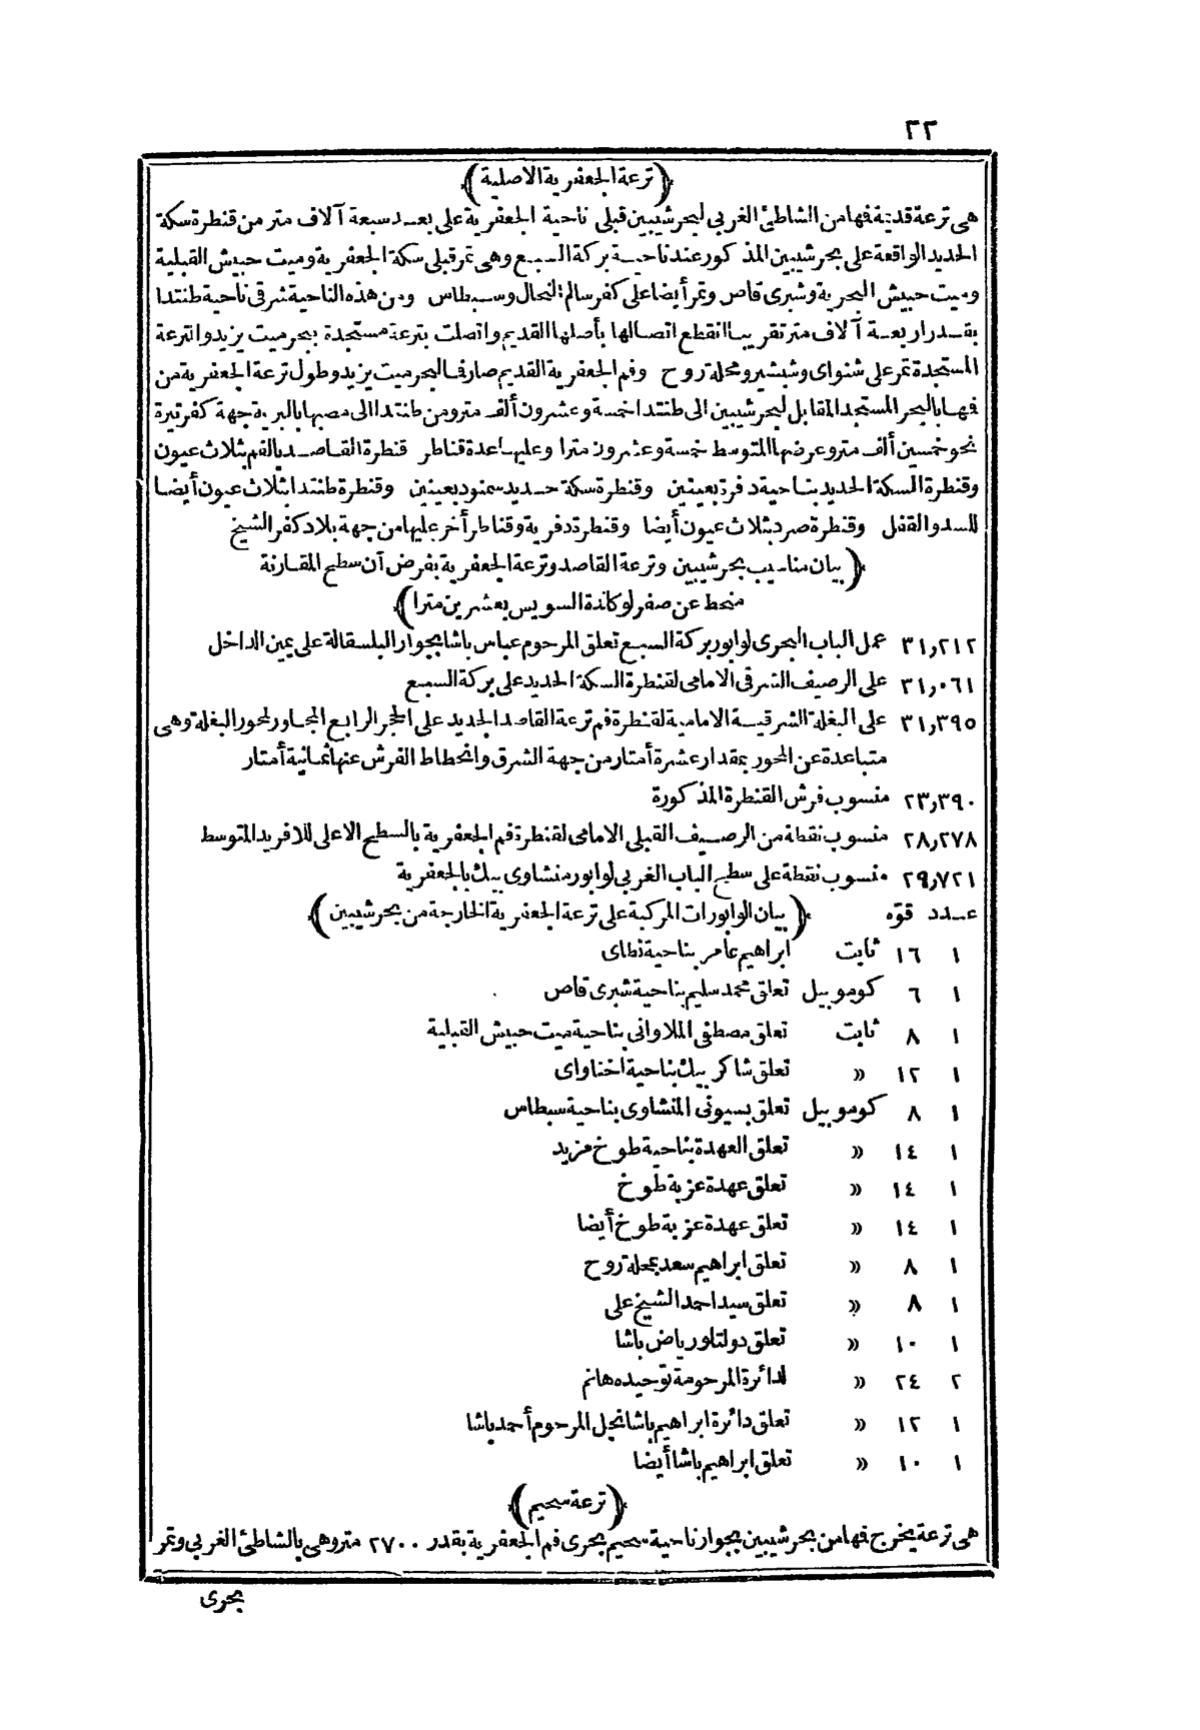 ٢٢
﴿ترعة الجعفرية الاصلية﴾
هى ترعة قديمة فهامن الشاطئ الغربي لبحرشيبين قبلى ناحية الجعفرية على بعد سبعة آلاف متر من قنطرة سكة
الحديد الواقعة على بحرشيبين المذكور عند ناحية بركة السبع وهى تمر قبلى سكة الجعفرية وميت حبيش القبلية
وميت حبيش البحرية وشبرى قاص وتمر أيضا على كفر سالم النحال وسبطاس ومن هذه الناحية شرقى ناحية طنتدا
بقدر اربعة آلاف متر تقريبا انقطع اتصالها بأصلها القديم واتصلت بترعة مستجدة ببحر ميت يزيد والترعة
المستجدة تمر على شنواى وشبشير ومحلة روح وفم الجعفرية القديم صار فى البحر ميت يزيد وطول ترعة الجعفرية من
فهابالبحر المستجد المقابل لبحرشيبين الى طنتدا خمسة وعشرون ألف متر ومن طنتدا الى مصبها بالبرية جهة كفرتيرة
نحو خمسين ألف متر وعرضها المتوسط خمسة وعشرون مترا وعليها عدة قناطر قنطرة القاصد بالفم بثلاث عيون
وقنطرة السكة الحديد بناحية دفرة بعينين وقنطرة سكة حديد سمنود بعينين وقنطرة طنتدا بثلاث عيون أيضا
للسد والقفل وقنطرة صرد بثلاث عيون أيضا وقنطرة دفرية وقناطر أخر عليها من جهة بلاد كفر الشيخ
﴿بيان مناسيب بحرشيبين وترعة القاصد وترعة الجعفرية بفرض آن سطح المقارنة
منحط عن صفر لوكاندة السويس بعشرين مترا﴾
٣١٫٢١٢ عمل الباب البحرى لوابور بركة السبع تعلق المرحوم عباس باشا بجوار البلسقالة على يمين الداخل
٣١٫٠٦١ على الرصيف الشرقى الامامى لقنطرة السكة الحديد على بركة السبع
٣١٫٣٩٥ على البغلة الشرقية الامامية لقنطرة فم ترعة القاصد الجديد على الحجر الرابع المجاور لمحور البغلة وهى
متباعدة عن المحور بمقدار عشرة أمتار من جهة الشرق وانحطاط الفرش عنها ثمانية أمتار
٢٣٫٣٩٠ منسوب فرش القنطرة المذكورة
٢٨٫٢٧٨ منسوب نقطة من الرصيف القبلى الامامى لقنطرة فم الجعفرية بالسطح الاعلى للافريد المتوسط
٢٩٫٧٢١ منسوب نقطة على سطح الباب الغربي لوابور منشاوى بيك بالجعفرية
عدد قوّه ﴿بيان الوابورات المركبة على ترعة الجعفرية الخارجة من بحرشيبين﴾
١ ١٦ ثابت ابراهيم عامر بناحية نطاى
١ ٦ كوموبيل تعلق محمد سليم بناحية شبرى قاص
١ ٨ ثابت تعلق مصطفى الملاوانى بناحية ميت حبيش القبلية
١ ١٢ « تعلق شاكر بيك بناحية اخناواى
١ ٨ كوموبيل تعلق بسيونى المنشاوى بناحية سبطاس
١ ١٤ « تعلق العهدة بناحية طوخ مزيد
١ ١٤ « تعلق عهدة عزبة طوخ
١ ١٤ « تعلق عهدة عزبة طوخ أيضا
١ ٨ « تعلق ابراهيم سعد بمحلة روح
١ ٨ « تعلق سيد احمد الشيخ على
١ ١٠ « تعلق دولتلو رياض باشا
٢ ٢٤ « لدائرة المرحومة توحيده هانم
١ ١٢ « تعلق دائرة ابراهيم باشا نجل المرحوم أحمد باشا
١ ١٠ « تعلق ابراهيم باشا أيضا
﴿ترعة سحيم﴾
هى ترعة يخرج فهامن بحرشيبين بجوار ناحية سحيم بحرى فم الجعفرية بقدر ٢٧٠٠ متر وهى بالشاطئ الغربى وتمر
بحرى